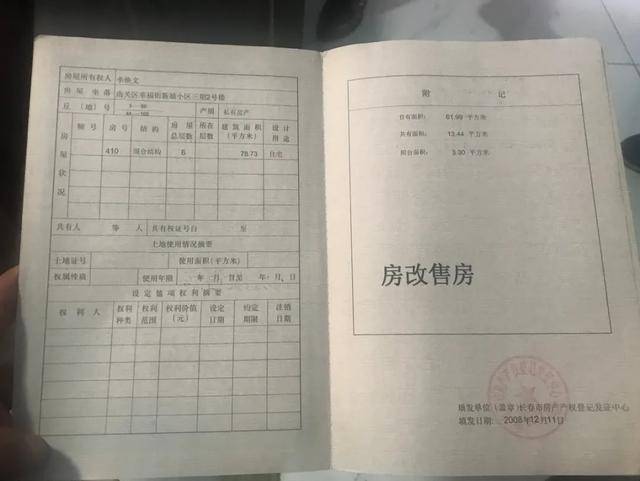 房屋所有权人 李焕文
房屋坐落 南关区幸福街新城小区三期2号楼
丘（地）号 产别 私有房产
房屋状况
幢号 房号 结构 房屋总层数 所在层数 建筑面积（平方米） 设计用途
410 混合结构 6 78.73 住宅
共有人 等 人 共有权证号自 至
土地使用情况摘要
土地证号 使用面积（平方米）
权属性质 使用年限 年 月 日至 年 月 日
设定他项权利摘要
权利人 权利种类 权利范围 权利价值（元） 设定日期 约定期限 注销日期
附 记
住宅面积： 61.99 平方米
共有面积： 13.44 平方米
阳台面积： 3.30 平方米
房改售房
填发单位（盖章）长春市房产产权登记发证中心
填发日期： 2008年12月11日